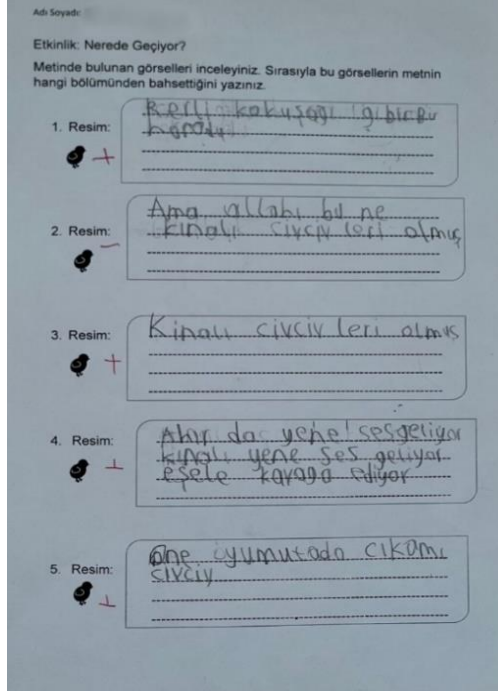 Adı Soyadı:
Etkinlik: Nerede Geçiyor?
Metinde bulunan görselleri inceleyiniz. Sırasıyla bu görsellerin metnin
hangi bölümünden bahsettiğini yazınız.
1. Resim:
gibi
2. Resim:
Ama allahı bu ne
kınalı civciv leri olmuş
3. Resim:
Kinalı civciv leri olmuş
4. Resim:
Ahır da yene ses geliyor
kınalı yene ses geliyor
eşele kavaga ediyor
5. Resim:
One yumutada cikamı
civciv